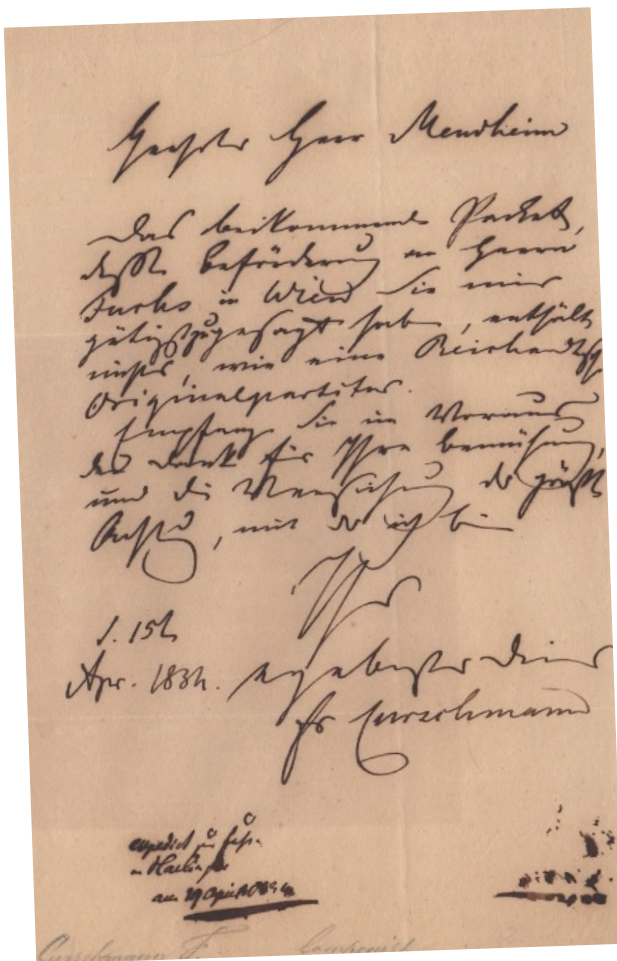 Geehrter Herr Mendheim
Das beikommende Packet,
dessen Beförderung an Herrn
Fuchs in Wien Sie mir
gütigst zugesagt haben, enthält
nichts, wie eine Reichardtsche
Originalpartitur.
Empfangen Sie im Voraus
den Dank für Ihre Bemühung,
und die Versicherung der größten
Achtung, mit der ich bin
Ihr
d. 15t
Apr. 1834. ergebenster Diener
Fr Curschmann
am 29 April 1834
Curschmann F. Componist